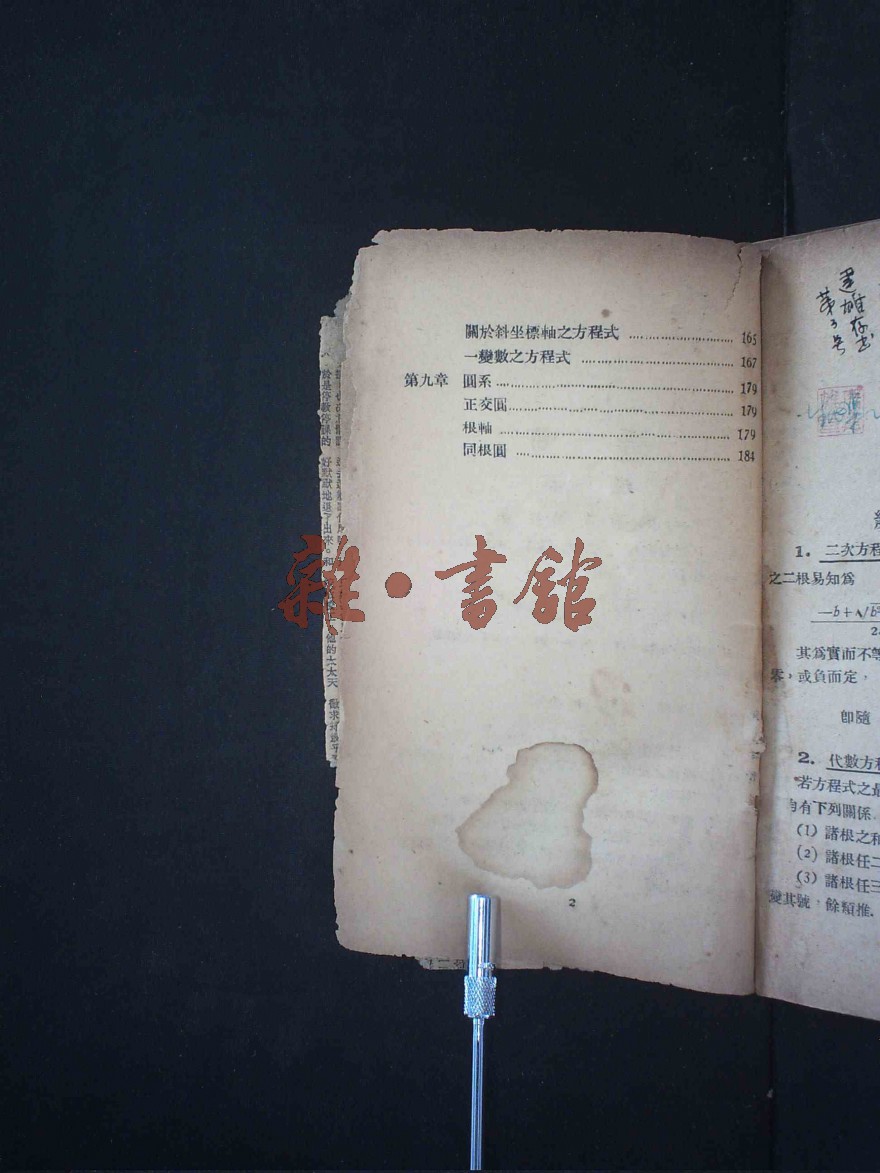 關於斜坐標軸之方程式 ........................ 165
一變數之方程式 ........................ 167
第九章 圓系 ........................ 179
正交圓 ........................ 179
根軸 ........................ 179
同根圓 ........................ 184
2
雜·書館
存
第3号
1. 二次方程
之二根易知爲
—b+√b²
其爲實而不等
零，或負而定，
卽隨
2. 代數方程
若方程式之最
有下列關係
(1) 諸根之和
(2) 諸根任二
(3) 諸根任三
變其號，餘類推.
好默默地退了出來。和
他的太太天